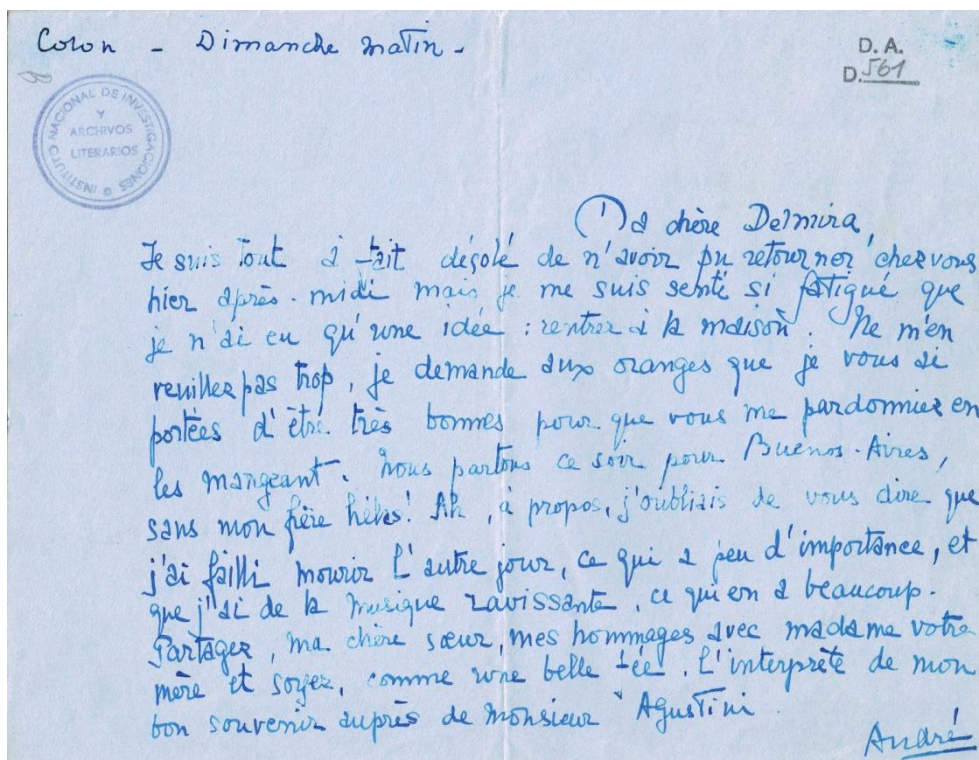 Colon - Dimanche matin -
D. A.
D. 561
INSTITUTO NACIONAL DE INVESTIGACIONES
Y
ARCHIVOS
LITERARIOS
Ma chère Delmira,
Je suis tout à fait désolé de n'avoir pu retourner chez vous
hier après-midi mais je me suis senti si fatigué que
je n'ai eu qu'une idée : rentrer à la maison. Ne m'en
veuillez pas trop, je demande aux oranges que je vous ai
portées d'être très bonnes pour que vous me pardonniez en
les mangeant. Nous partons ce soir pour Buenos-Aires,
sans mon frère hélas! Ah, à propos, j'oubliais de vous dire que
j'ai failli mourir l'autre jour, ce qui a peu d'importance, et
que j'ai de la musique ravissante, ce qui en a beaucoup.
Partagez, ma chère sœur, mes hommages avec madame votre
mère et soyez, comme une belle fée, l'interprète de mon
bon souvenir auprès de Monsieur Agustini
André